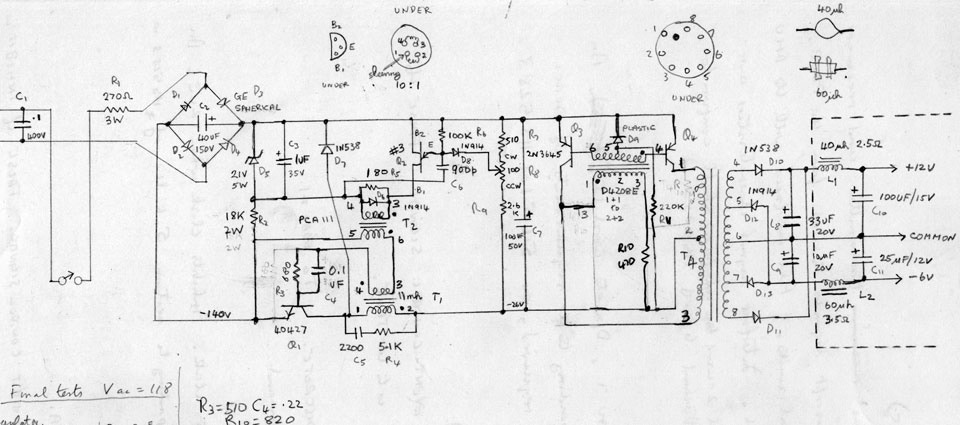 UNDER
B2
E
B1
UNDER
sleeving
10:1
1
8
7
2
6
3
4
5
UNDER
40μh
60μh
C1
.1
400V
R1
270Ω
3W
D1
GE D3
SPHERICAL
C2
+
40UF
150V
D2
D4
21V
5W
D5
C3
1UF
35V
1N538
D7
#3
Q2
B2
E
B1
100K
R6
1N914
D8
90Dp
C6
180
R5
D6
1N914
4
3
PCA111
T2
5
6
18K
7W
2W
R2
R3
0.1
UF
C4
4
3
11mh
T1
1
2
-140V
40427
Q1
2200
C5
5.1K
R4
R7
510
CW
100
CCW
R8
2.6
K
R9
100UF
50V
C7
-26V
Q3
2N3645
PLASTIC
D9
Q4
6
5
1
2
3
D4208E
1+1
TO
2+2
13
220K
R11
R10
470
T4
2
3
4
5
6
7
8
1N538
D10
1N914
D12
D13
D11
C8
33UF
20V
C9
10UF
20V
40μh 2.5Ω
L1
+12V
100UF/15V
C10
COMMON
25μF/12V
C11
-6V
L2
60μh
3.5Ω
Final tests Vac = 118
R3=510 C4=.22
R10=820